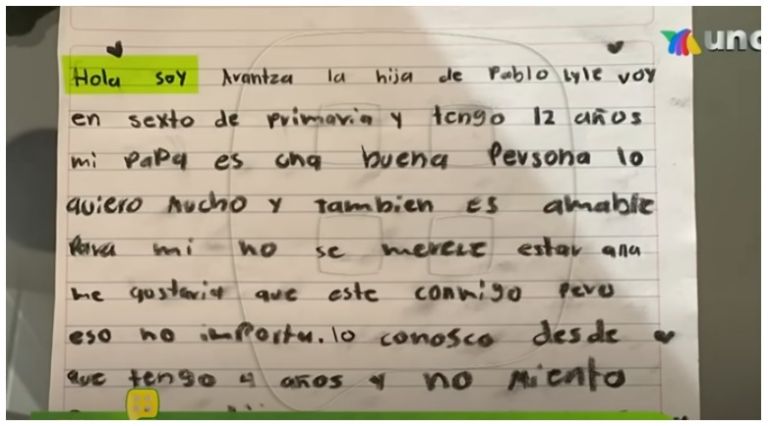 uno
Hola soy Arantza la hija de Pablo Lyle voy
en sexto de primaria y tengo 12 años
mi papa es una buena persona lo
quiero mucho y tambien es amable
para mi no se merece estar ana
me gustaria que este conmigo pero
eso no importa. lo conosco desde
que tengo 4 años y no miento